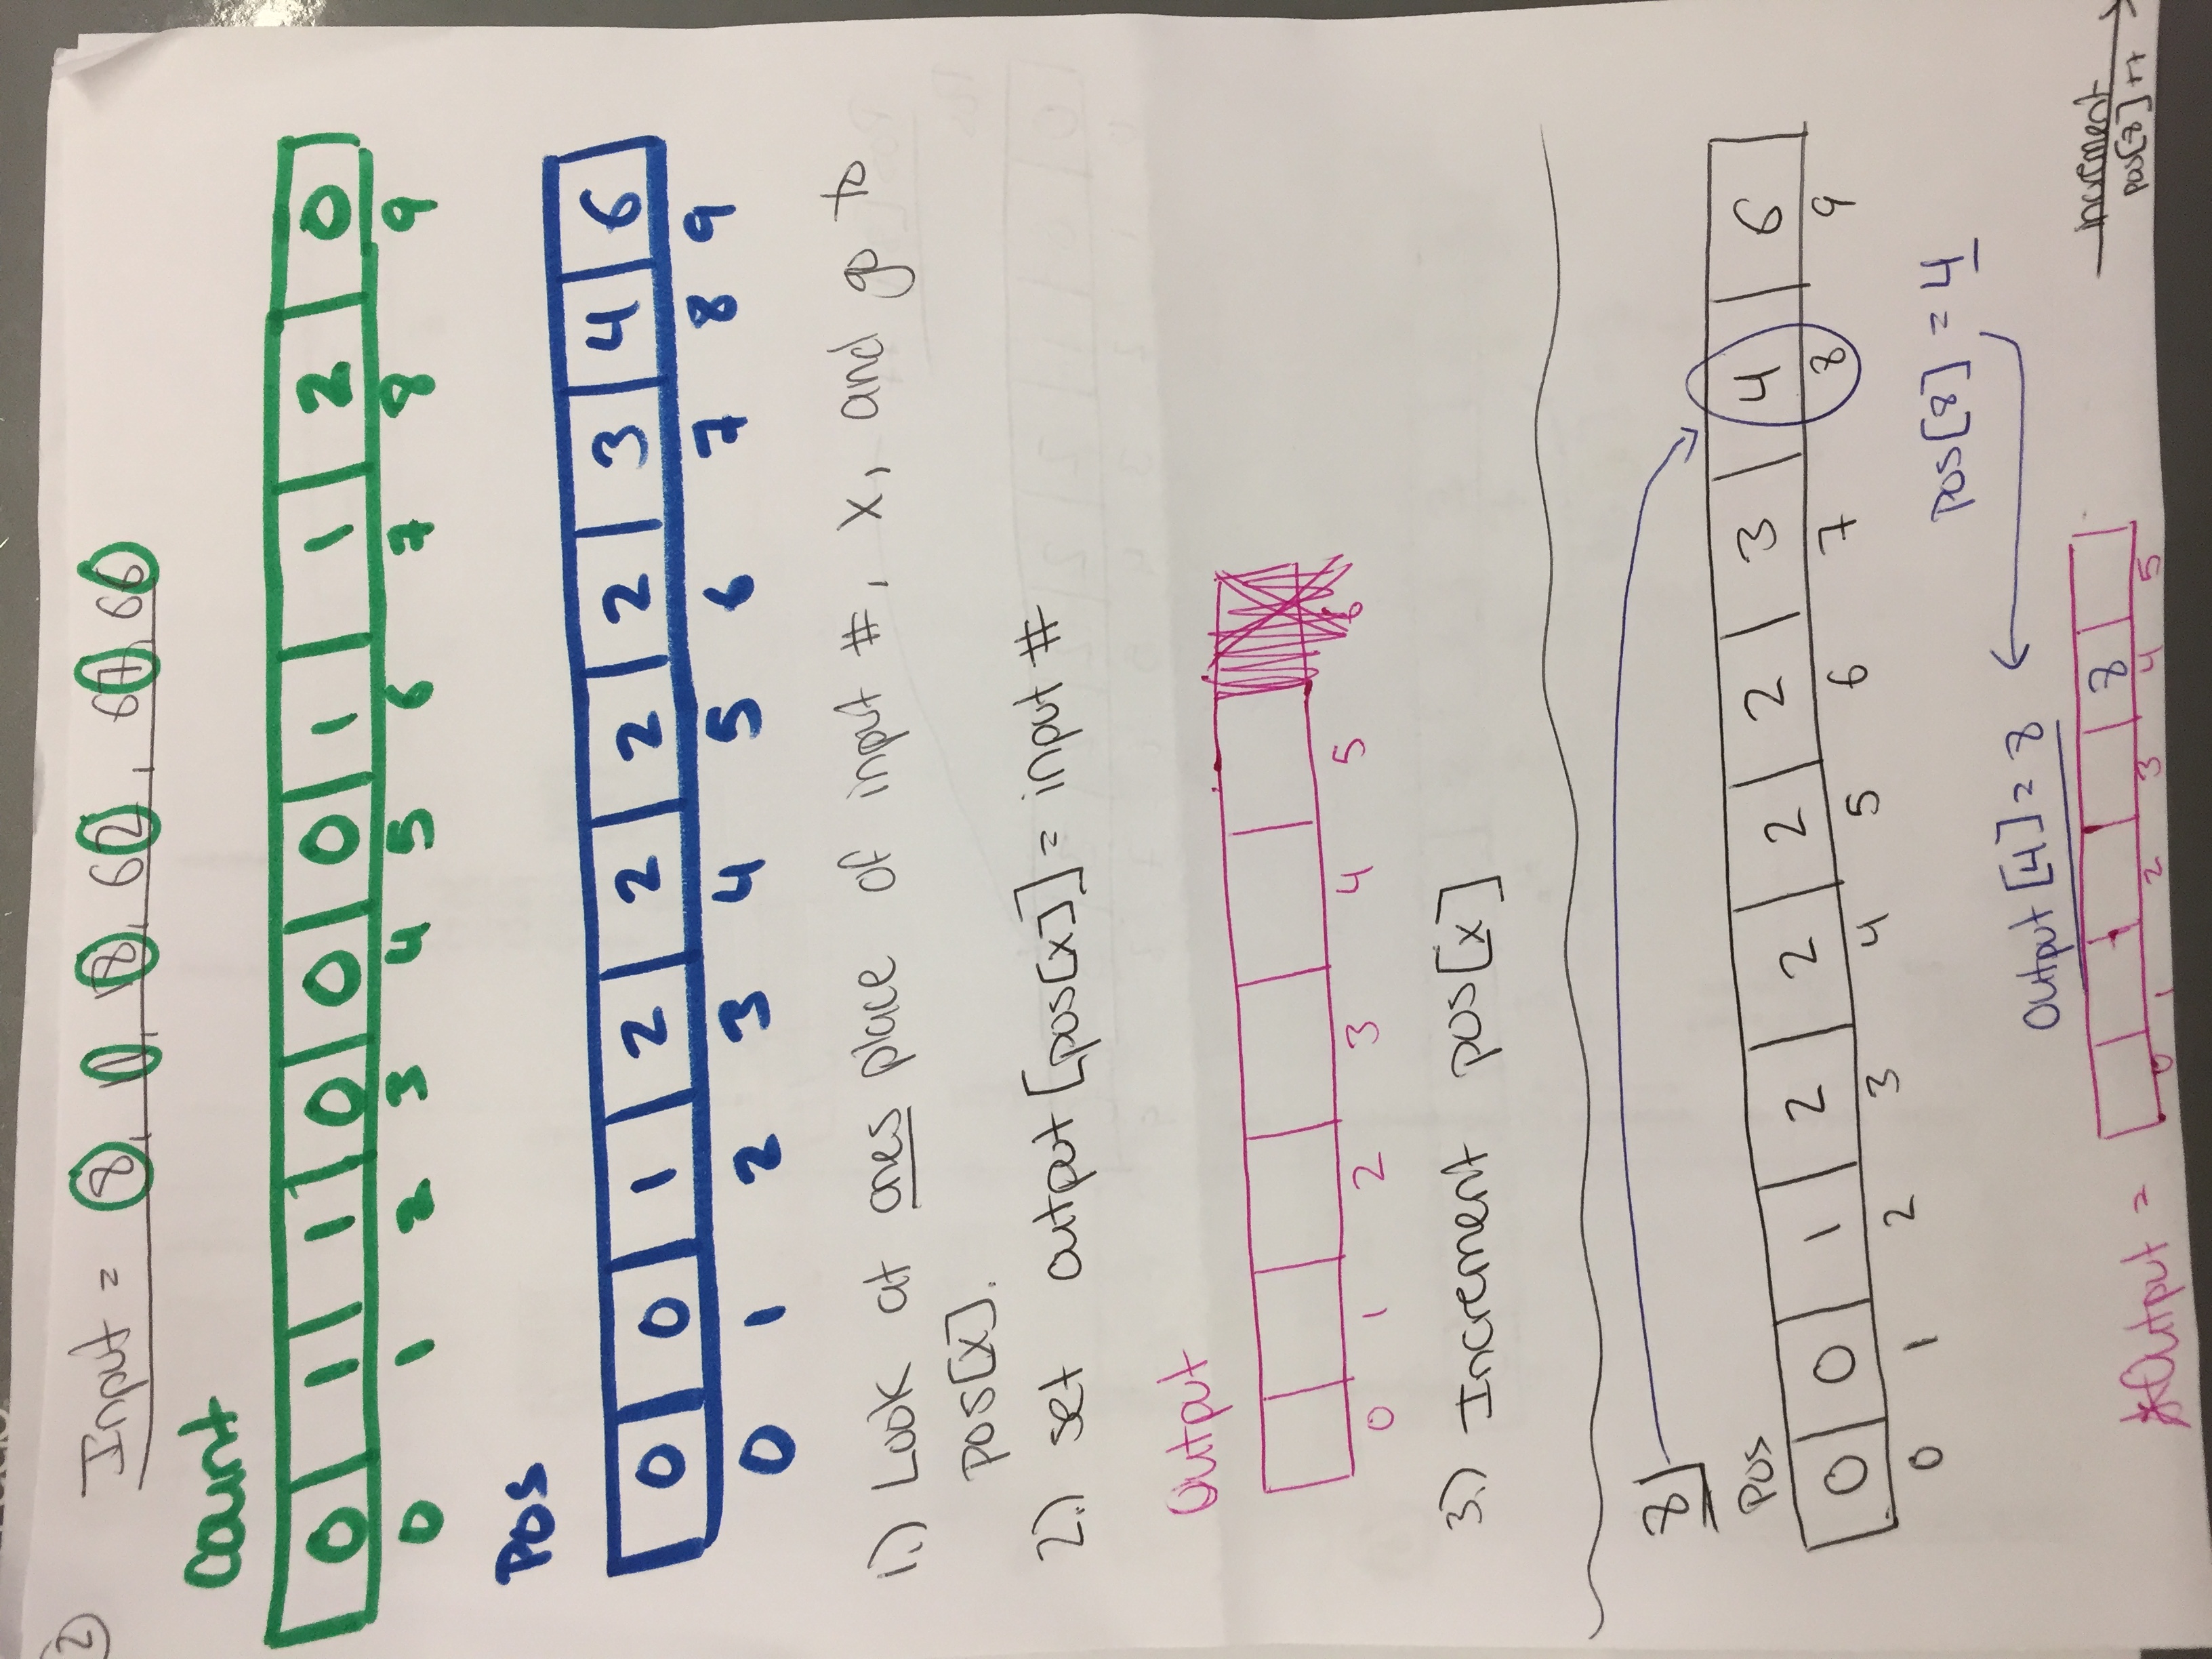 2
Input = 8, 11, 18, 62, 67, 66
Count
0 1 1 0 0 0 1 1 2 0
0 1 2 3 4 5 6 7 8 9
Pos
0 0 1 2 2 2 2 3 4 6
0 1 2 3 4 5 6 7 8 9
1.) Look at ones place of input #, x, and go to
pos[x].
2.) set output[pos[x]] = input #
Output
0 1 2 3 4 5 6
3.) Increment pos[x]
8
Pos
0 0 1 2 2 2 2 3 4 6
0 1 2 3 4 5 6 7 8 9
Pos[8] = 4
Output[4] = 8
*Output =
8
0 1 2 3 4 5
increment
pos[8]++